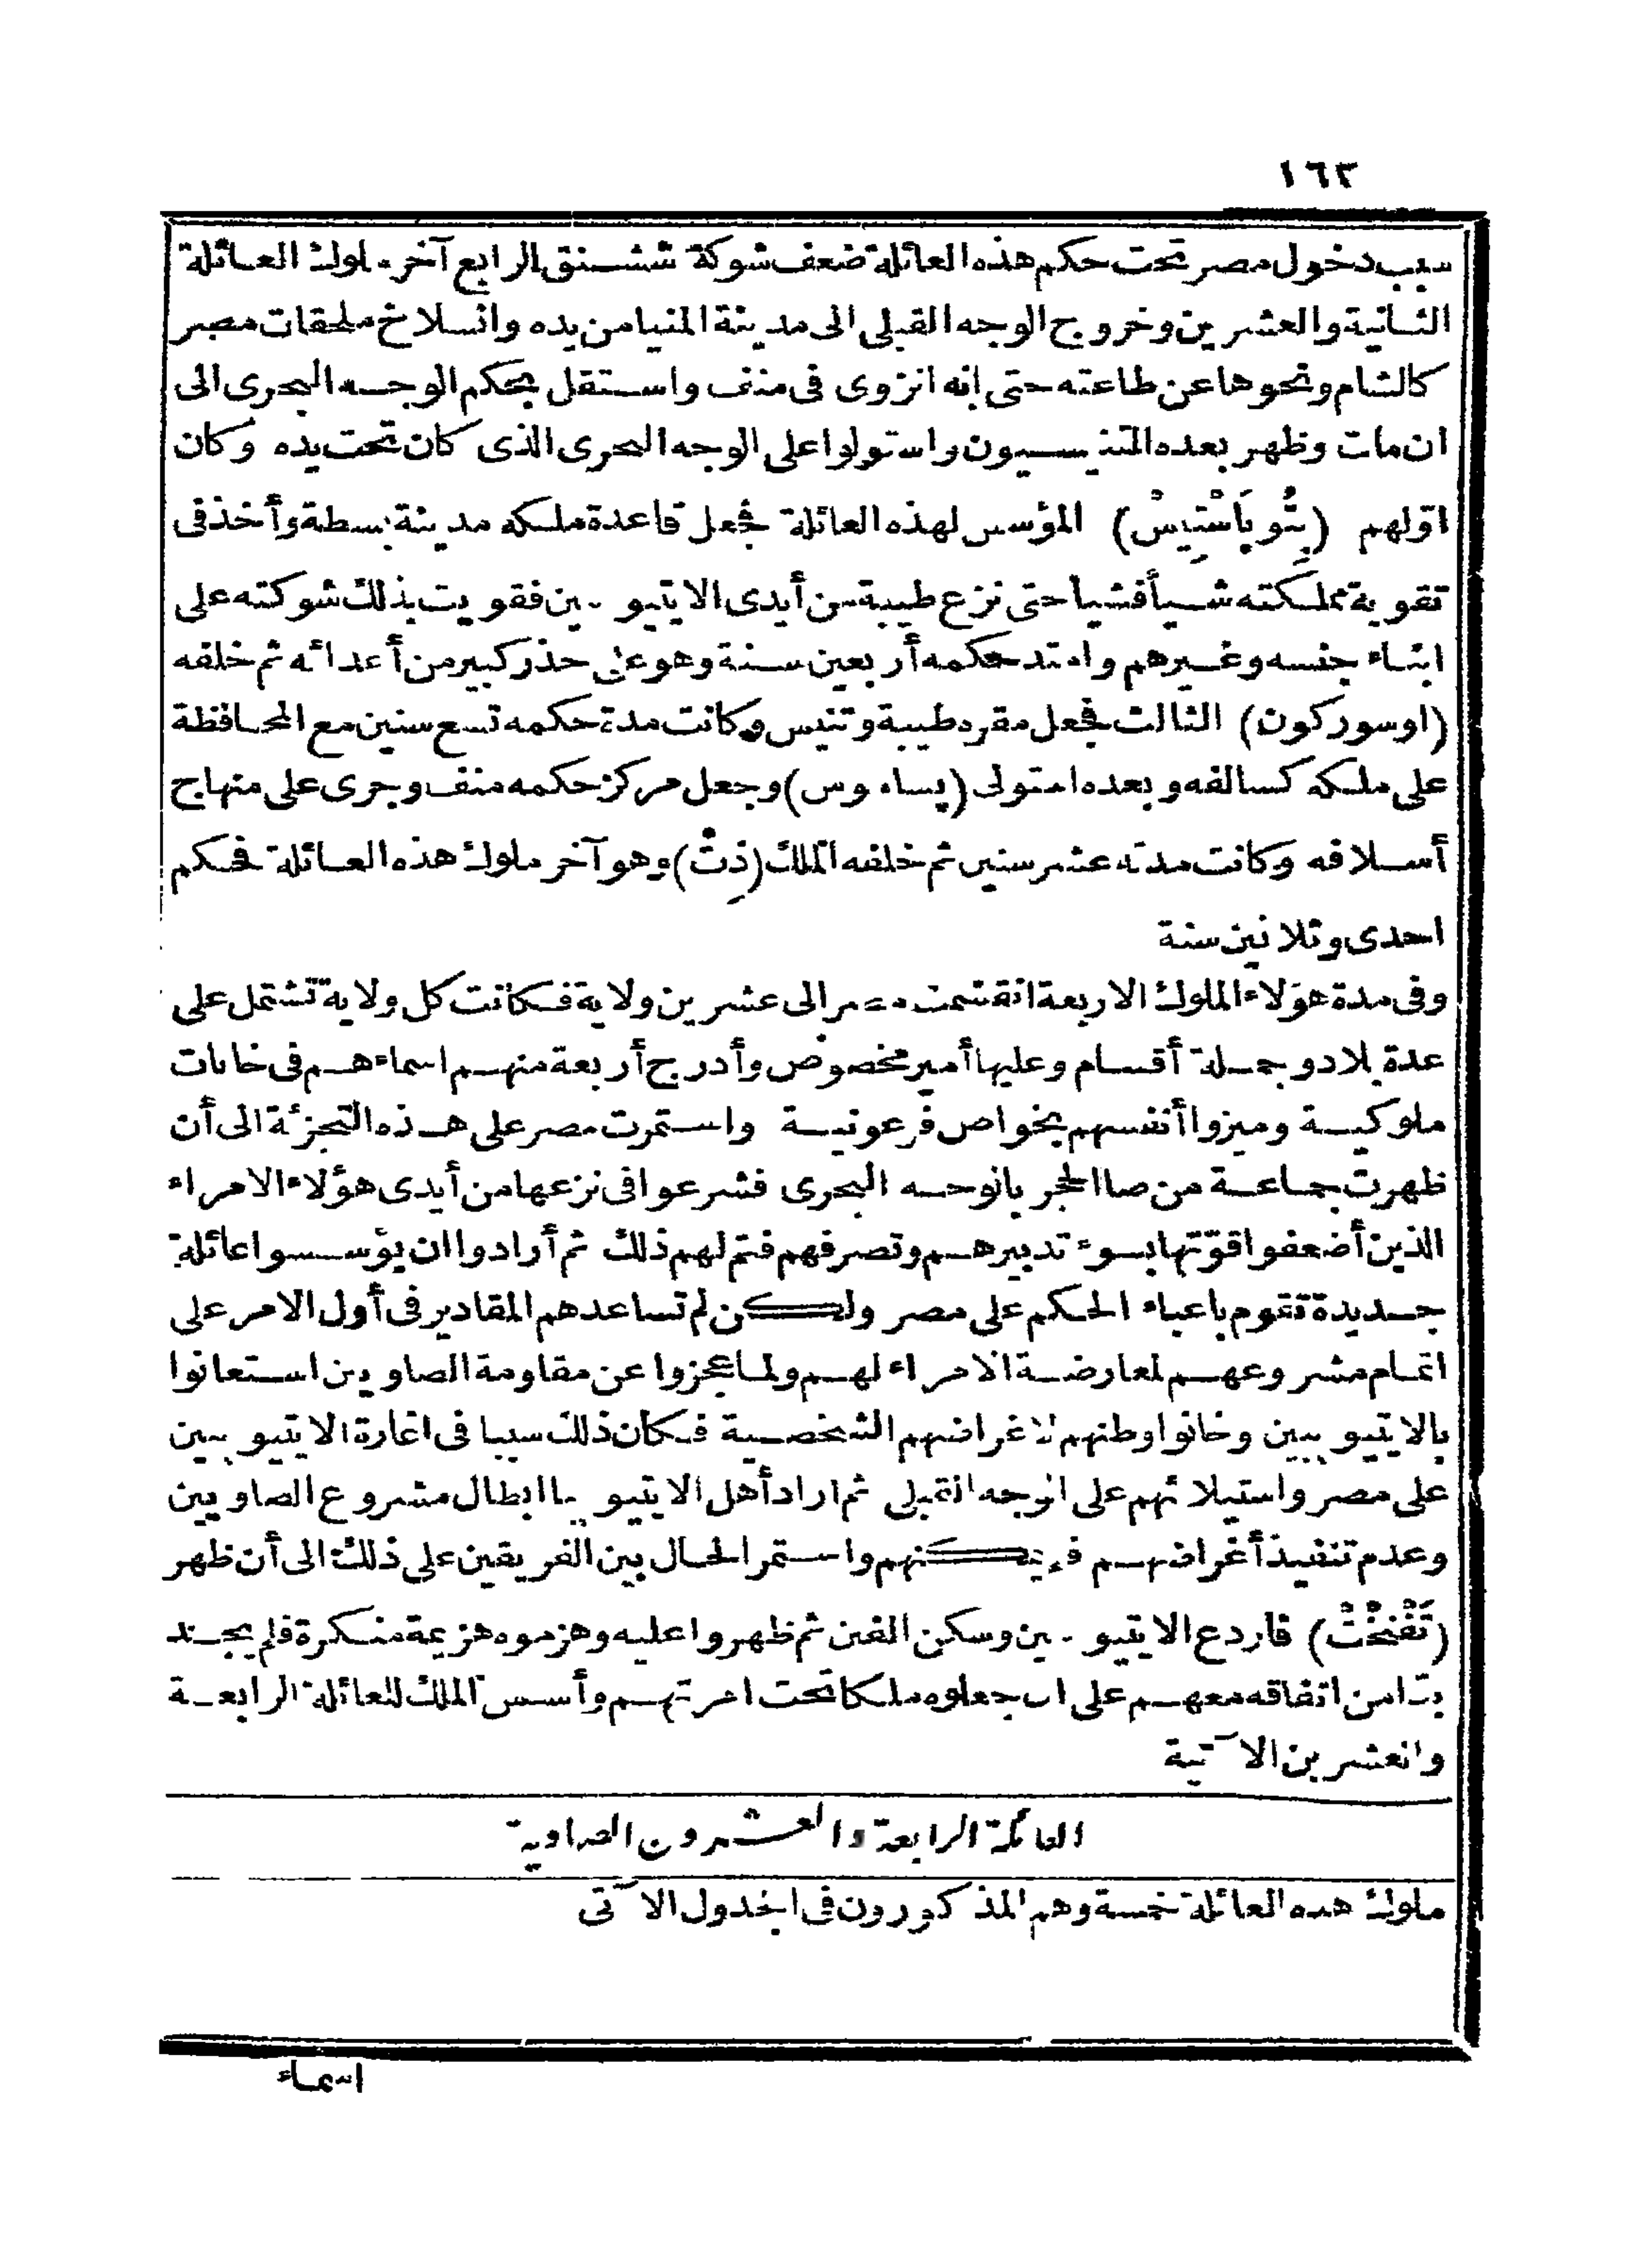 ١٦٢
سبب دخول مصر تحت حكم هذه العائلة ضعف شوكة ششنق الرابع آخر ملوك العائلة
الثانية والعشرين وخروج الوجه القبلى الى مدينة المنيا من يده وانسلاخ ملحقات مصر
كالشام ونحوها عن طاعته حتى انه انزوى فى منف واستقل بحكم الوجه البحرى الى
ان مات وظهر بعده التنيسيون واستولوا على الوجه البحرى الذى كان تحت يده وكان
اوّلهم (پِتُو بَاسْتِيسْ) المؤسس لهذه العائلة فجعل قاعدة ملكه مدينة بسطة وأخذ فى
تقوية مملكته شيأ فشيا حتى نزع طيبة من أيدى الايتيوبيين فقويت بذلك شوكته على
ابناء جنسه وغيرهم وامتد حكمه أربعين سنة وهو على حذر كبير من أعدائه ثم خلفه
(اوسوركون) الثالث فجعل مقره طيبة وتنيس وكانت مدة حكمه تسع سنين مع المحافظة
على ملكه كسالفه وبعده استولى (پساموس) وجعل مركز حكمه منف وجرى على منهاج
أسلافه وكانت مدته عشر سنين ثم خلفه الملك (ذِتْ) وهو آخر ملوك هذه العائلة فحكم
احدى وثلاثين سنة
وفى مدة هؤلاء الملوك الاربعة انقسمت مصر الى عشرين ولاية فكانت كل ولاية تشتمل على
عدة بلاد وجملة أقسام وعليها أمير مخصوص وأدرج أربعة منهم اسماءهم فى خانات
ملوكية وميزوا أنفسهم بخواص فرعونية واستمرت مصر على هذه التجزئة الى أن
ظهرت جماعة من صا الحجر بالوجه البحرى فشرعوا فى نزعها من أيدى هؤلاء الامراء
الذين أضعفوا قوّتها بسوء تدبيرهم وتصرفهم فتم لهم ذلك ثم أرادوا ان يؤسسوا عائلة
جديدة تقوم باعباء الحكم على مصر ولكن لم تساعدهم المقادير فى أول الامر على
اتمام مشروعهم لمعارضة الامراء لهم ولما عجزوا عن مقاومة الصاويين استعانوا
بالايتيوبيين وخانوا وطنهم لاغراضهم الشخصية فكان ذلك سببا فى اغارة الايتيوبيين
على مصر واستيلائهم على الوجه القبلى ثم اراد أهل الايتيوبيا ابطال مشروع الصاويين
وعدم تنفيذ أغراضهم فلم يمكنهم واستمر الحال بين الفريقين على ذلك الى أن ظهر
(تَفْنَخْتْ) فاردع الايتيوبيين وسكن الفتن ثم ظهروا عليه وهزموه هزيمة منكرة فلم يجد
بدّا من اتفاقه معهم على ان جعلوه ملكا تحت امرتهم وأسس الملك للعائلة الرابعة
والعشرين الآتية
العائلة الرابعة والعشرون الصاوية
ملوك هذه العائلة خمسة وهم المذكورون فى الجدول الآتى
اسماء